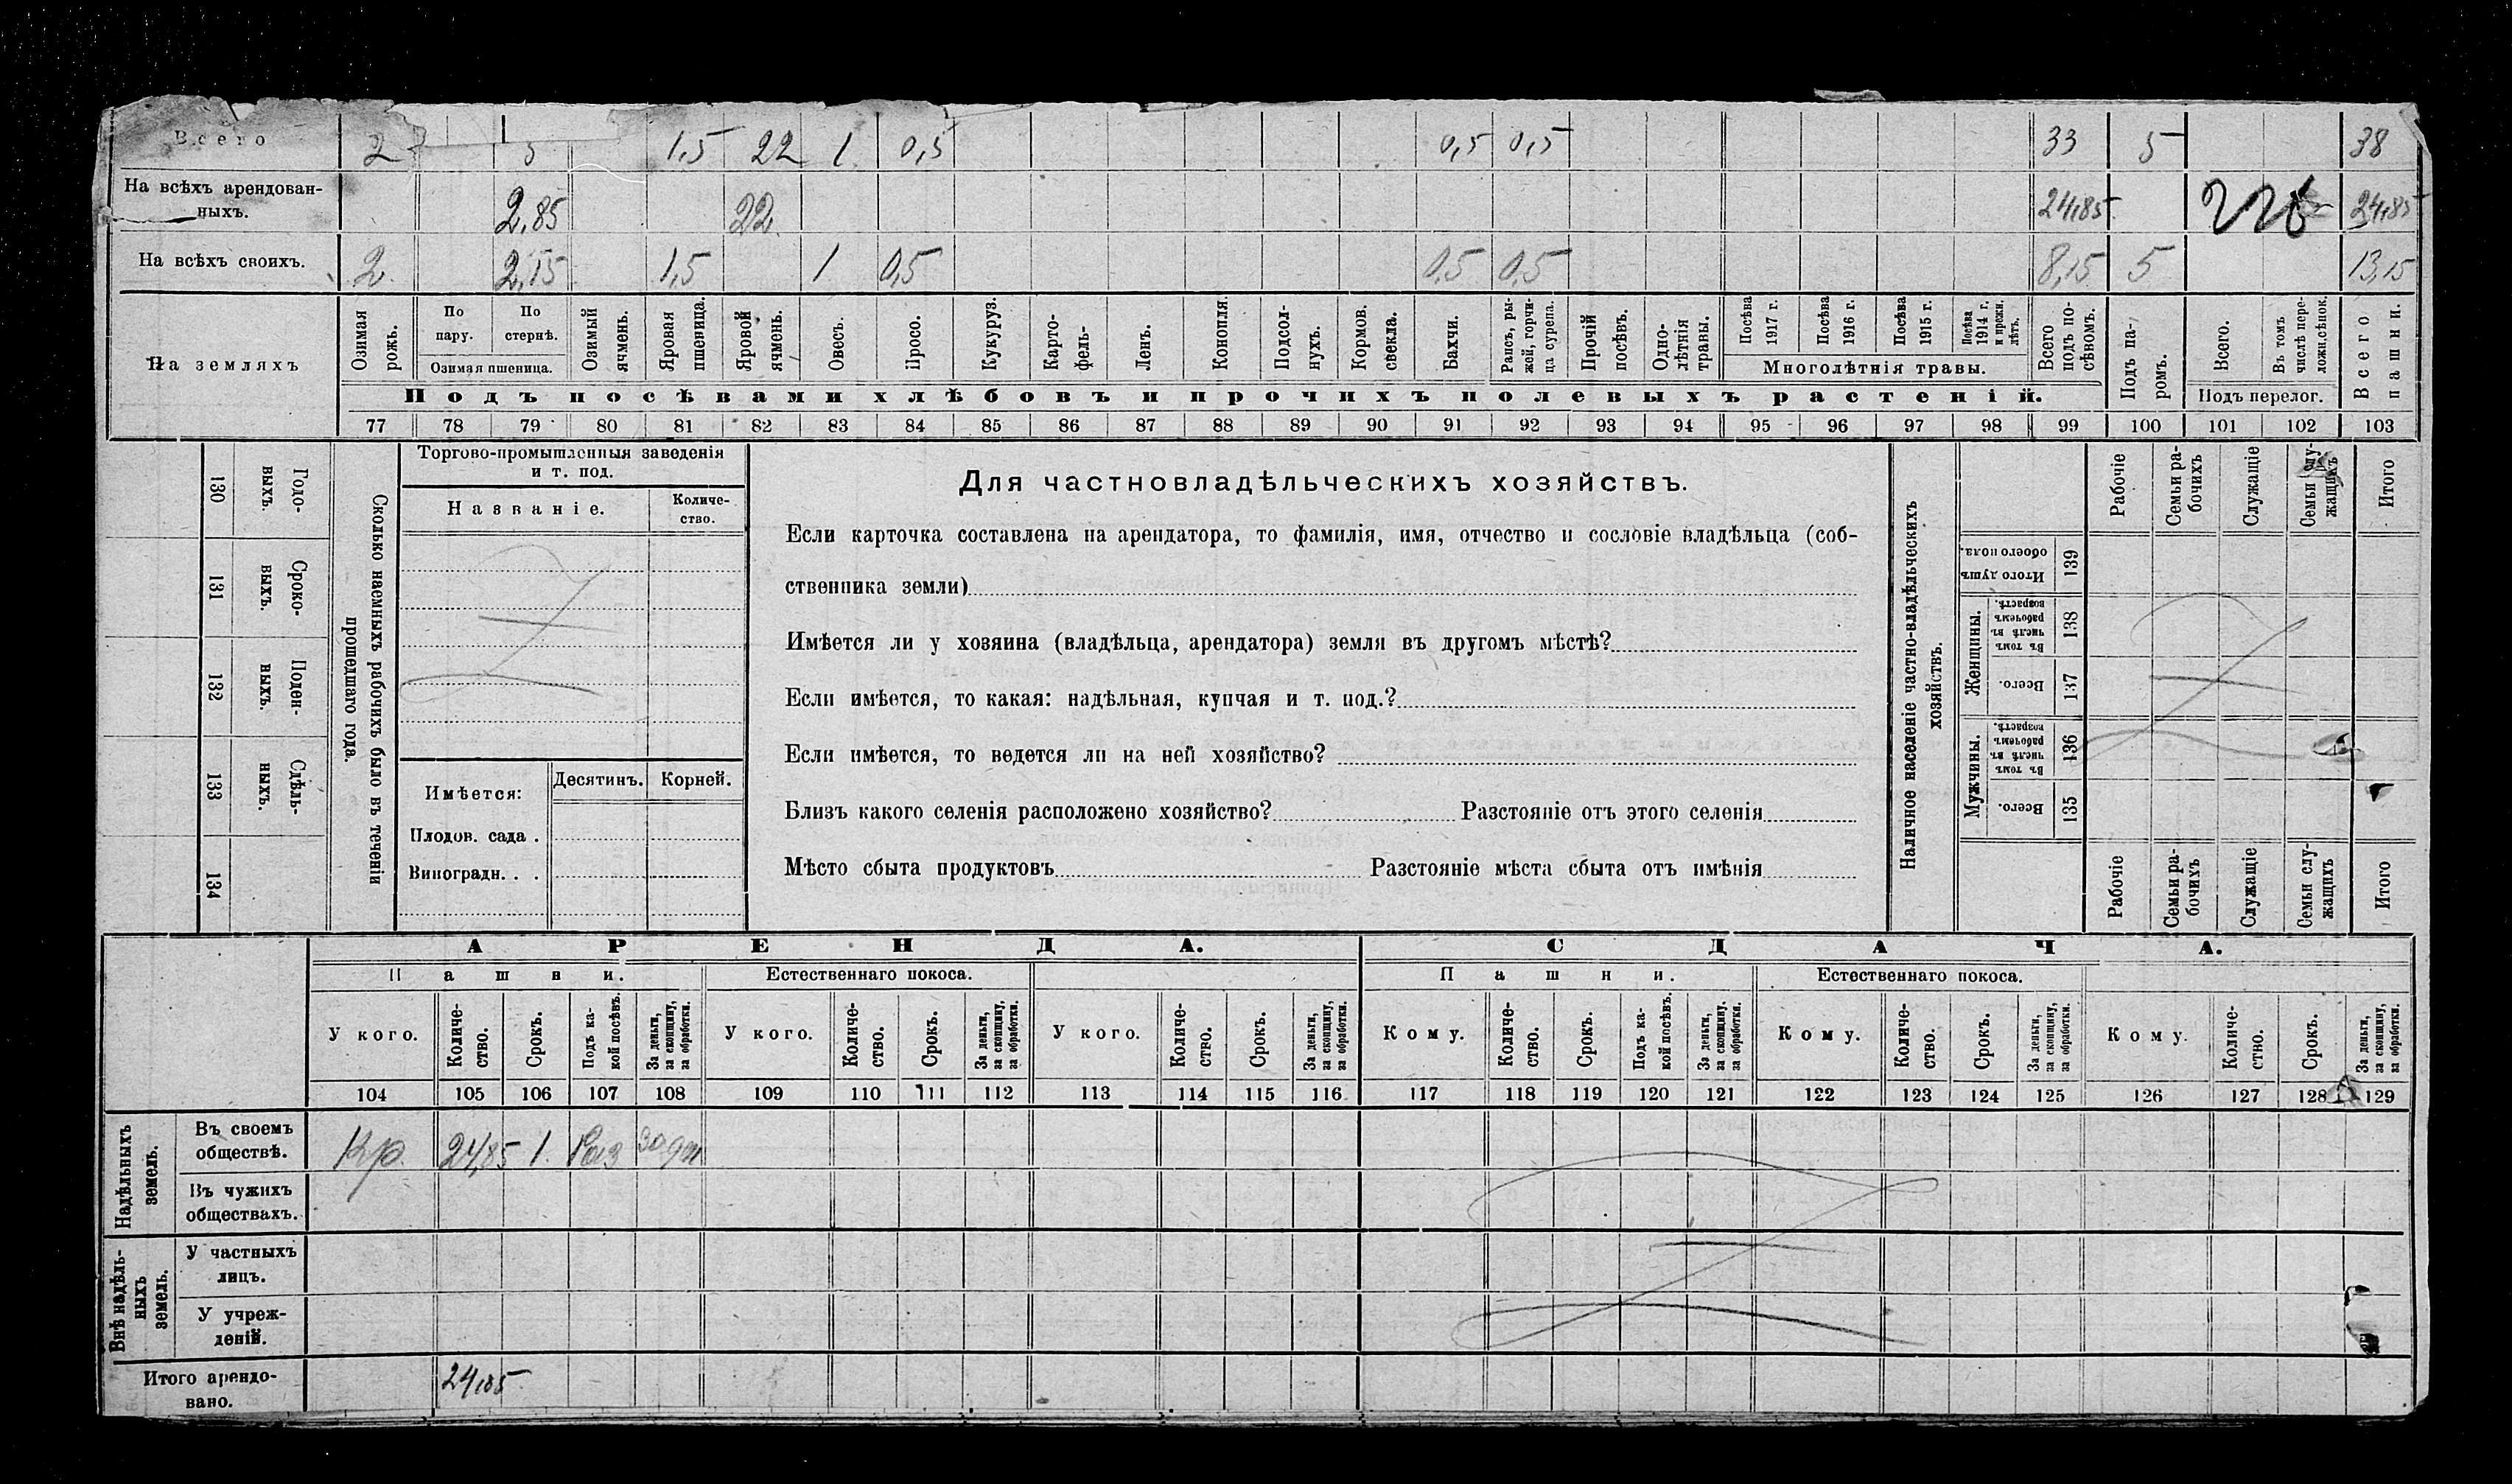 Всего 2 5 1,5 22 1 0,5 0,5 0,5 33 5 38
На всѣхъ арендован-
ныхъ. 2,85 22 24,85 24,85
На всѣхъ своихъ. 2 2,15 1,5 1 0,5 0,5 0,5 8,15 5 13,15
На земляхъ
Озимая рожь.
По пару.
По стернѣ.
Озимая пшеница.
Озимый ячмень.
Яровая пшеница.
Яровой ячмень.
Овесъ.
Просо.
Кукуруз.
Карто-
фель-
Ленъ.
Конопля.
Подсол-
нухъ.
Кормов. свекла.
Бахчи.
Рапсъ, ры-
жей, горчи-
ца сурепа.
Прочій посѣвъ.
Одно-
лѣтнія травы.
Посѣва 1917 г.
Посѣва 1916 г.
Посѣва 1915 г.
Посѣва 1914 г. и прежн. лѣтъ.
Многолѣтнія травы.
Всего подъ по-
сѣвомъ.
Подъ па-
ромъ.
Всего.
Въ томъ числѣ пере-
ложн. сѣнок.
Подъ перелог.
Всего пашни.
Подъ посѣвами хлѣбовъ и прочихъ полевыхъ растеній.
77 78 79 80 81 82 83 84 85 86 87 88 89 90 91 92 93 94 95 96 97 98 99 100 101 102 103
Сколько наемныхъ рабочихъ было въ теченіи
прошедшаго года.
130 Годо-
выхъ.
131 Сроко-
выхъ.
132 Поден-
ныхъ.
133 Сдѣль-
ныхъ.
134
Торгово-промышленныя заведенія
и т. под.
Названіе.
Количе-
ство.
Имѣется: Десятинъ. Корней.
Плодов. сада .
Виноградн. . .
Для частновладѣльческихъ хозяйствъ.
Если карточка составлена на арендатора, то фамилія, имя, отчество и сословіе владѣльца (соб-
ственника земли)
Имѣется ли у хозяина (владѣльца, арендатора) земля въ другомъ мѣстѣ?
Если имѣется, то какая: надѣльная, купчая и т. под.?
Если имѣется, то ведется ли на ней хозяйство?
Близъ какого селенія расположено хозяйство? Разстояніе отъ этого селенія
Мѣсто сбыта продуктовъ Разстояніе мѣста сбыта отъ имѣнія
Наличное населеніе частно-владѣльческихъ
хозяйствъ.
Рабочіе
Семьи ра-
бочихъ
Служащіе
Семьи слу-
жащихъ
Итого
Итого душъ
обоего пола.
139
Женщины.
Въ томъ числѣ въ рабочемъ возрастѣ.
138
Всего.
137
Мужчины.
Въ томъ числѣ въ рабочемъ возрастѣ.
136
Всего.
135
Рабочіе
Семьи ра-
бочихъ
Служащіе
Семьи слу-
жащихъ
Итого
АРЕНДА. СДАЧА.
Пашни. Естественнаго покоса. Пашни. Естественнаго покоса.
У кого.
Количе-
ство.
Срокъ.
Подъ ка-
кой посѣвъ.
За деньги,
за скопщину,
за обработки.
У кого.
Количе-
ство.
Срокъ.
За деньги,
за скопщину,
за обработки.
У кого.
Количе-
ство.
Срокъ.
За деньги,
за скопщину,
за обработки.
Кому.
Количе-
ство.
Срокъ.
Подъ ка-
кой посѣвъ.
За деньги,
за скопщину,
за обработки.
Кому.
Количе-
ство.
Срокъ.
За деньги,
за скопщину,
за обработки.
Кому.
Количе-
ство.
Срокъ.
За деньги,
за скопщину,
за обработки.
104 105 106 107 108 109 110 111 112 113 114 115 116 117 118 119 120 121 122 123 124 125 126 127 128 129
Надѣльныхъ
земель.
Въ своемъ
обществѣ. Кр. 24,85 1. Раз за ден
Въ чужихъ
обществахъ.
Внѣ надѣль-
ныхъ
земель.
У частныхъ
лицъ.
У учреж-
деній.
Итого арендо-
вано. 24,85